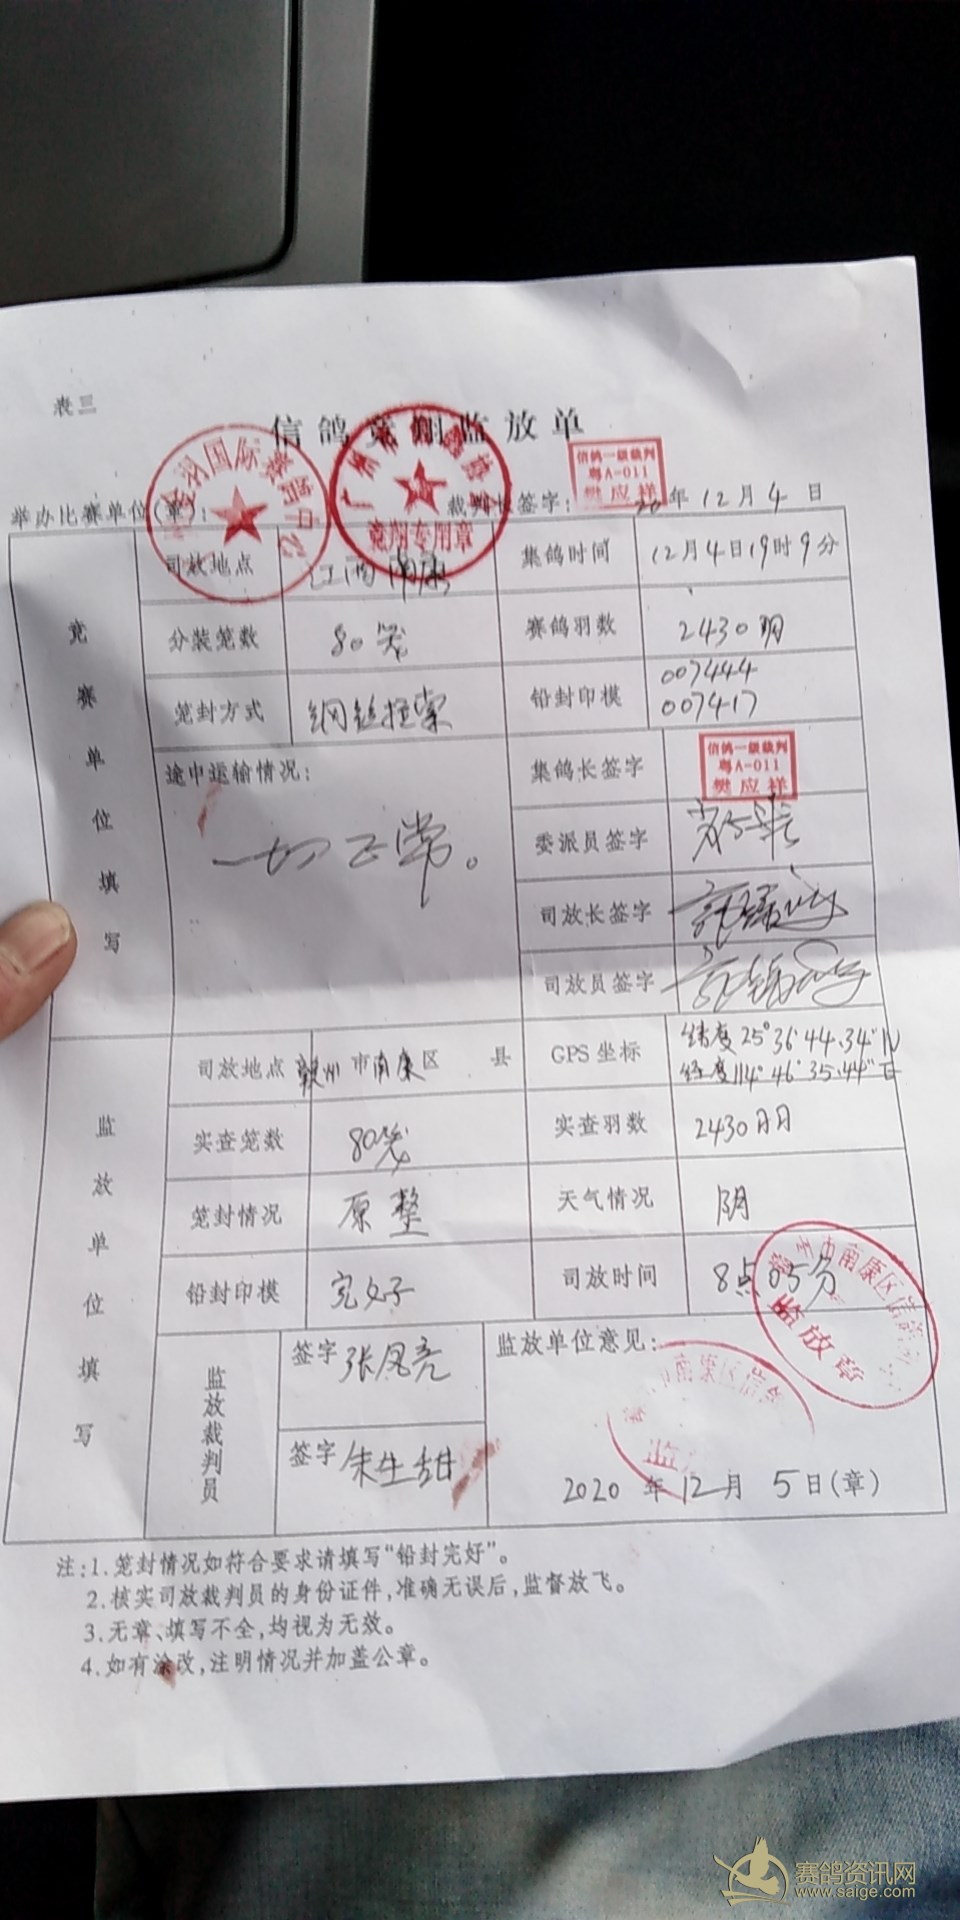 表三
信鸽竞翔监放单
国际赛鸽中心
广州市信鸽协会
竞翔专用章
信鸽一级裁判
粤A-011
樊应祥
举办比赛单位(章): 裁判长签字: 20年12月4日
竞赛单位填写
司放地点 江西南康 集鸽时间 12月4日19时9分
分装笼数 80笼 赛鸽羽数 2430羽
笼封方式 钢丝 铅封印模 007444
007417
途中运输情况: 集鸽长签字 信鸽一级裁判
粤A-011
樊应祥
一切正常。
委派员签字
司放长签字
司放员签字
监放单位填写
司放地点 赣州市南康区 县 GPS坐标 纬度25°36′44.34″N
经度114°46′35.44″E
实查笼数 80笼 实查羽数 2430羽
笼封情况 原整 天气情况 阴
铅封印模 完好 司放时间 8点05分
市南康区信鸽
监放章
监放裁判员 签字 张凤亮 监放单位意见:
市南康区信鸽
监
签字 朱生甜
2020年12月5日(章)
注:1.笼封情况如符合要求请填写“铅封完好”。
2.核实司放裁判员的身份证件,准确无误后,监督放飞。
3.无章、填写不全,均视为无效。
4.如有涂改,注明情况并加盖公章。
赛鸽资讯网
www.saige.com